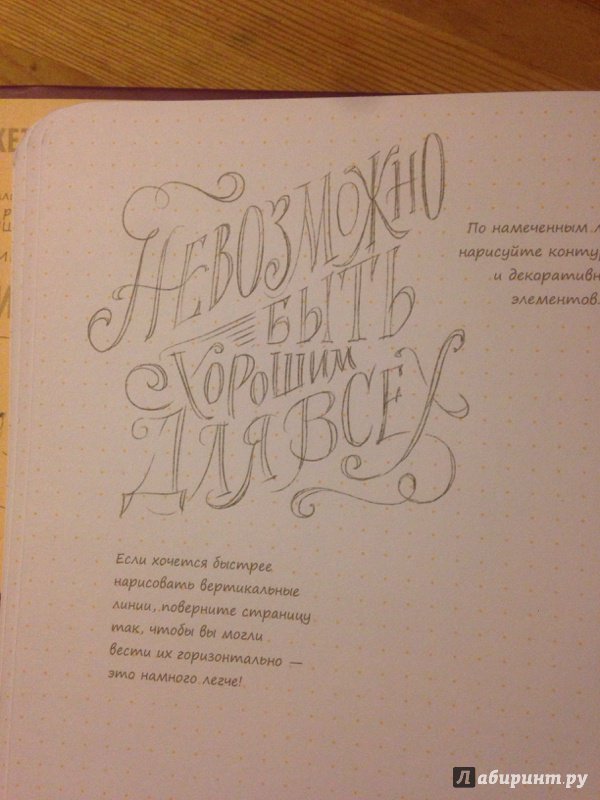 НЕВОЗМОЖНО
БЫТЬ
ХОРОШИМ
ДЛЯ ВСЕХ
По намеченным
нарисуйте
и
элементов.
Если хочется быстрее
нарисовать вертикальные
линии, поверните страницу
так, чтобы вы могли
вести их горизонтально —
это намного легче!
Лабиринт.ру